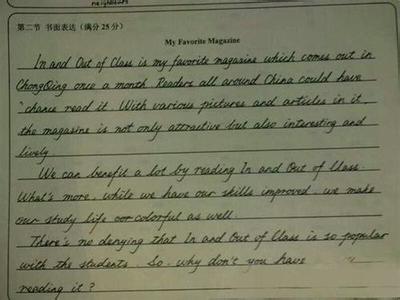 neighbours
第二节 书面表达（满分25分）
My Favorite Magazine
In and Out of Class is my favorite magazine which comes out in
ChongQing once a month. Readers all around China could have
chance read it. With various pictures and articles in it,
the magazine is not only attractive but also interesting and
lively
We can benefit a lot by reading In and Out of Class.
What's more, while we have our skills improved, we make
our study life colorful as well.
There's no denying that In and Out of Class is so popular
with the students. So, why don't you have
reading it?